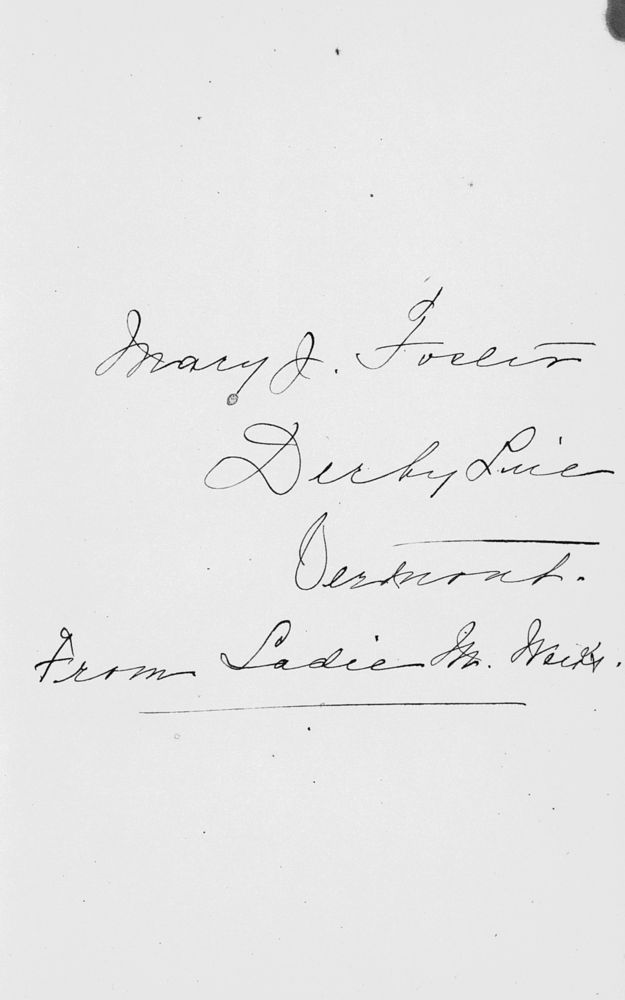 Mary J. Foster
Derby Line
Vermont.
From Sadie M.